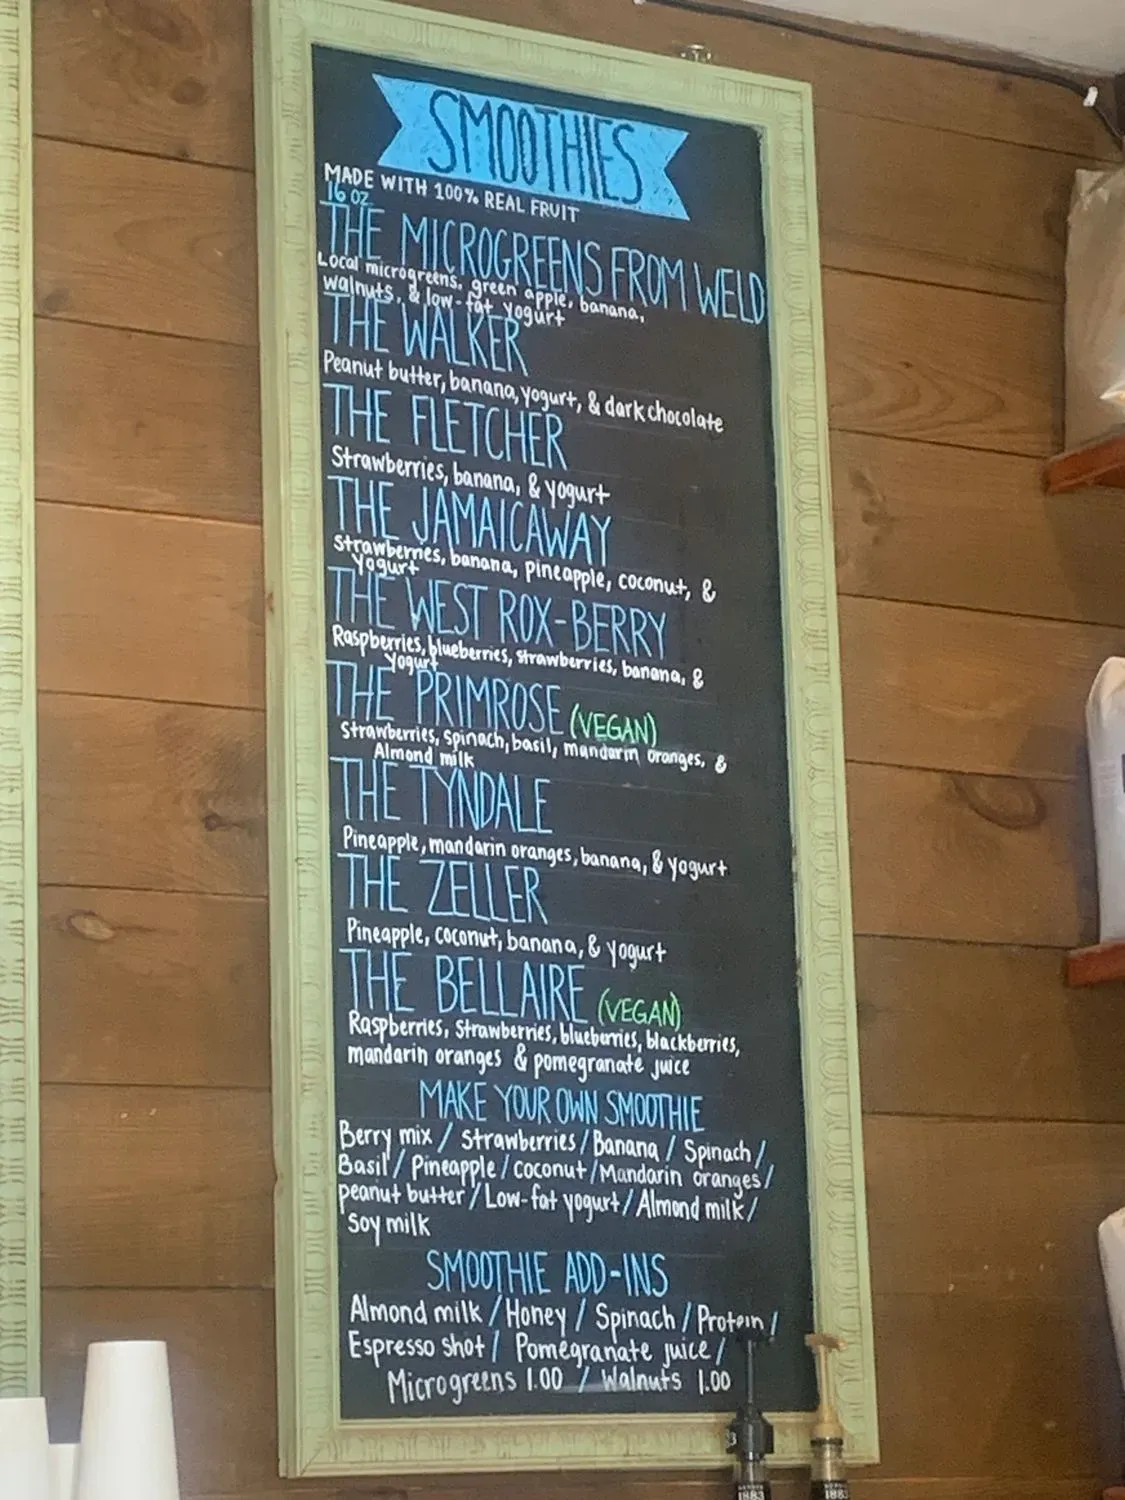 SMOOTHIES
MADE WITH 100% REAL FRUIT
16 OZ
THE MICROGREENS FROM WELD
Local microgreens, green apple, banana,
walnuts, & low-fat yogurt
THE WALKER
Peanut butter, banana, yogurt, & dark chocolate
THE FLETCHER
Strawberries, banana, & yogurt
THE JAMAICAWAY
Strawberries, banana, pineapple, coconut, &
Yogurt
THE WEST ROX-BERRY
Raspberries, blueberries, strawberries, banana, &
Yogurt
THE PRIMROSE (VEGAN)
Strawberries, spinach, basil, mandarin oranges, &
Almond milk
THE TYNDALE
Pineapple, mandarin oranges, banana, & yogurt
THE ZELLER
Pineapple, coconut, banana, & yogurt
THE BELLAIRE (VEGAN)
Raspberries, Strawberries, blueberries, blackberries,
mandarin oranges & pomegranate juice
MAKE YOUR OWN SMOOTHIE
Berry mix / Strawberries / Banana / Spinach /
Basil / Pineapple / coconut / Mandarin oranges /
peanut butter / Low-fat yogurt / Almond milk /
Soy milk
SMOOTHIE ADD-INS
Almond milk / Honey / Spinach / Protein /
Espresso shot / Pomegranate juice /
Microgreens 1.00 / Walnuts 1.00
1883
1883